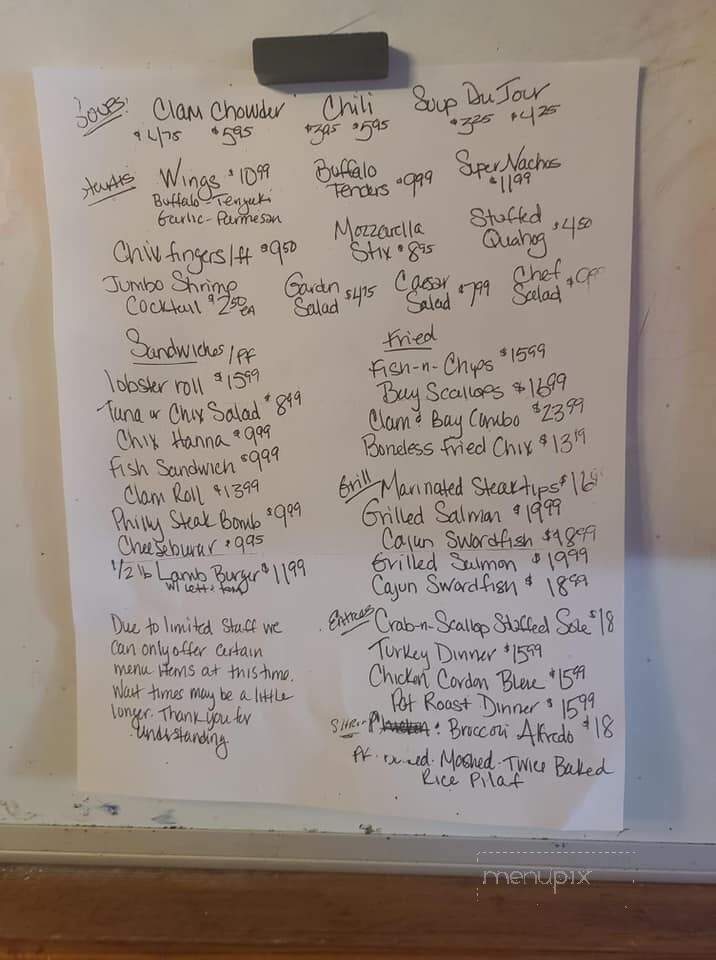 Soups: Clam Chowder Chili Soup Du Jour
$4.75 $5.95 $3.95 $5.95 $3.25 $4.25
Starters Wings $10.99 Buffalo Tenders $9.99 Super Nachos $11.99
Buffalo - Teriyaki
Garlic - Parmesan
Chix fingers/ff $9.50 Mozzarella Stix $8.95 Stuffed Quahog $4.50
Jumbo Shrimp Cocktail $2.50 EA Garden Salad $4.75 Caesar Salad $7.99 Chef Salad
Sandwiches/FF
lobster roll $15.99
Tuna or Chix Salad $8.99
Chix Hanna $9.99
Fish Sandwich $9.99
Clam Roll $13.99
Philly Steak Bomb $9.99
Cheeseburger $9.95
1/2 lb Lamb Burger $11.99
w/ Lett + tom
Due to limited Staff we
can only offer certain
menu items at this time.
Wait times may be a little
longer. Thank you for
understanding
Fried
Fish-n-Chips $15.99
Bay Scallops $16.99
Clam & Bay Combo $23.99
Boneless Fried Chix
Grill Marinated Steak tips
Grilled Salmon $19.99
Cajun Swordfish $18.99
Grilled Salmon $19.99
Cajun Swordfish $18.99
Entrees Crab-n-Scallop Stuffed Sole $18
Turkey Dinner $15.99
Chicken Cordon Bleu $15.99
Pot Roast Dinner $15.99
Broccoli Alfredo $18
FF Mashed - Twice Baked
Rice Pilaf
menupix